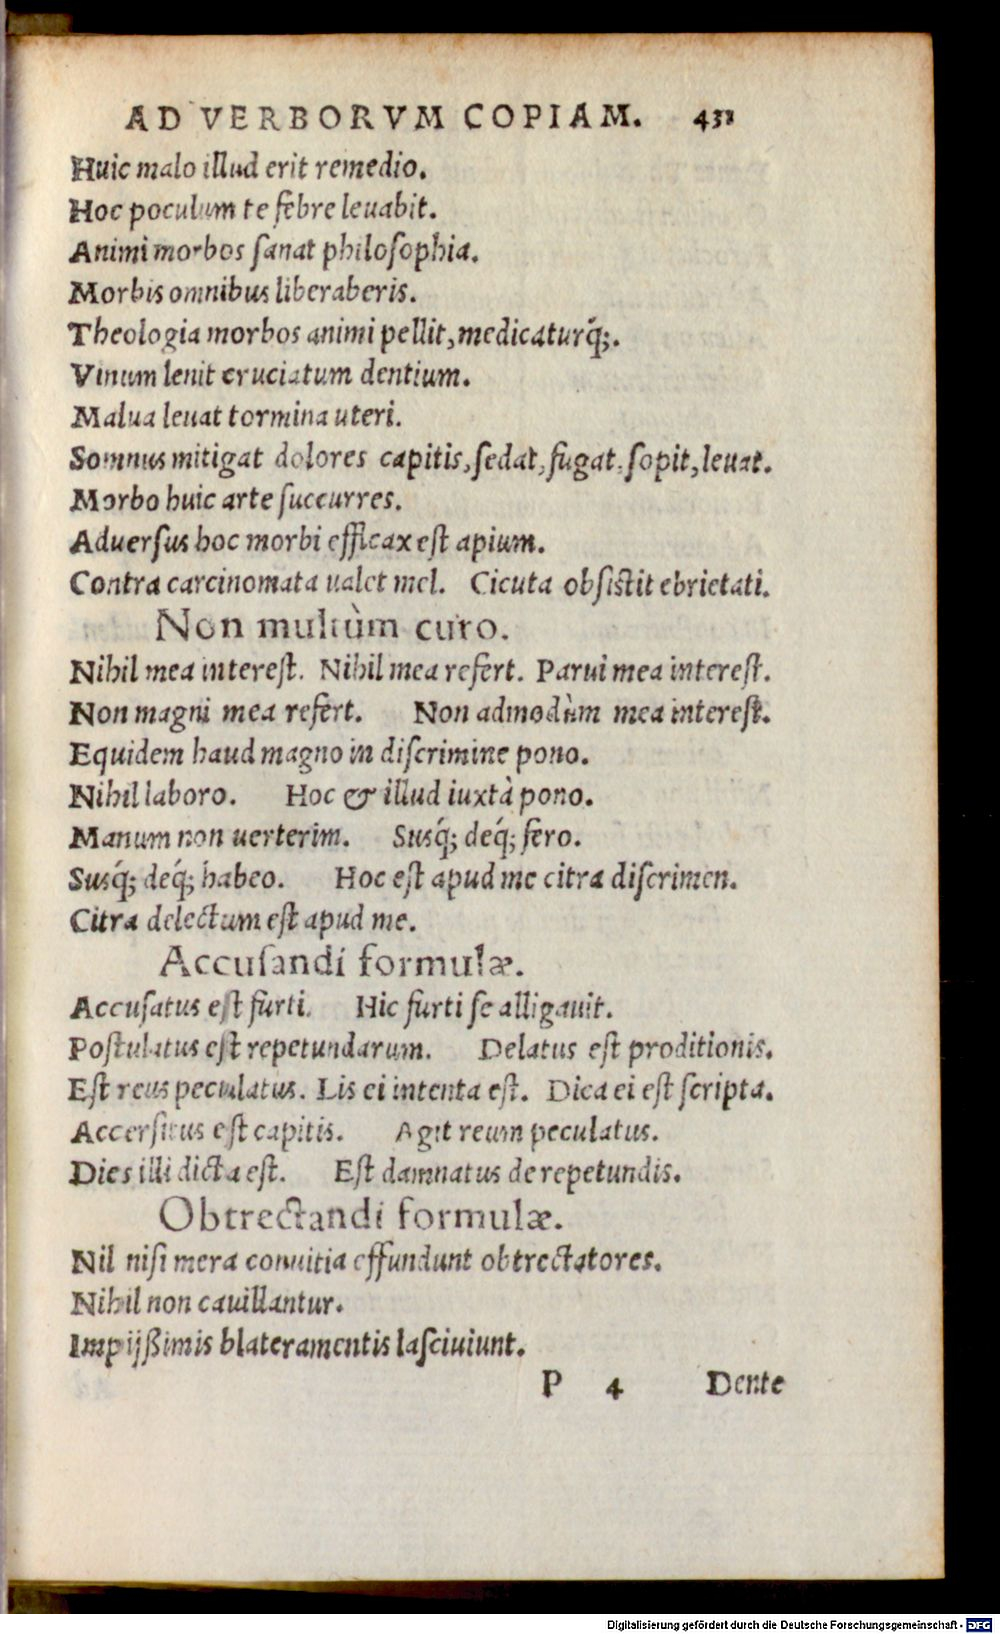 AD VERBORVM COPIAM. 431
Huic malo illud erit remedio.
Hoc poculum te febre leuabit.
Animi morbos ſanat philoſophia.
Morbis omnibus liberaberis.
Theologia morbos animi pellit, medicaturq́;.
Vinum lenit cruciatum dentium.
Malua leuat tormina uteri.
Somnus mitigat dolores capitis, ſedat, fugat, ſopit, leuat.
Morbo huic arte ſuccurres.
Aduerſus hoc morbi efficax eſt apium.
Contra carcinomata ualet mel. Cicuta obſiſtit ebrietati.
Non multùm curo.
Nihil mea intereſt. Nihil mea refert. Parui mea intereſt.
Non magni mea refert. Non admodùm mea intereſt.
Equidem haud magno in diſcrimine pono.
Nihil laboro. Hoc & illud iuxtà pono.
Manum non uerterim. Susq́; deq́; fero.
Susq́; deq́; habeo. Hoc eſt apud me citra diſcrimen.
Citra delectum eſt apud me.
Accuſandi formulæ.
Accuſatus eſt furti. Hic furti ſe alligauit.
Poſtulatus eſt repetundarum. Delatus eſt proditionis.
Eſt reus peculatus. Lis ei intenta eſt. Dica ei eſt ſcripta.
Accerſitus eſt capitis. Agit reum peculatus.
Dies illi dicta eſt. Eſt damnatus de repetundis.
Obtrectandi formulæ.
Nil niſi mera conuitia effundunt obtrectatores.
Nihil non cauillantur.
Impijßimis blateramentis laſciuiunt.
P 4 Dente
Digitalisierung gefördert durch die Deutsche Forschungsgemeinschaft - DFG